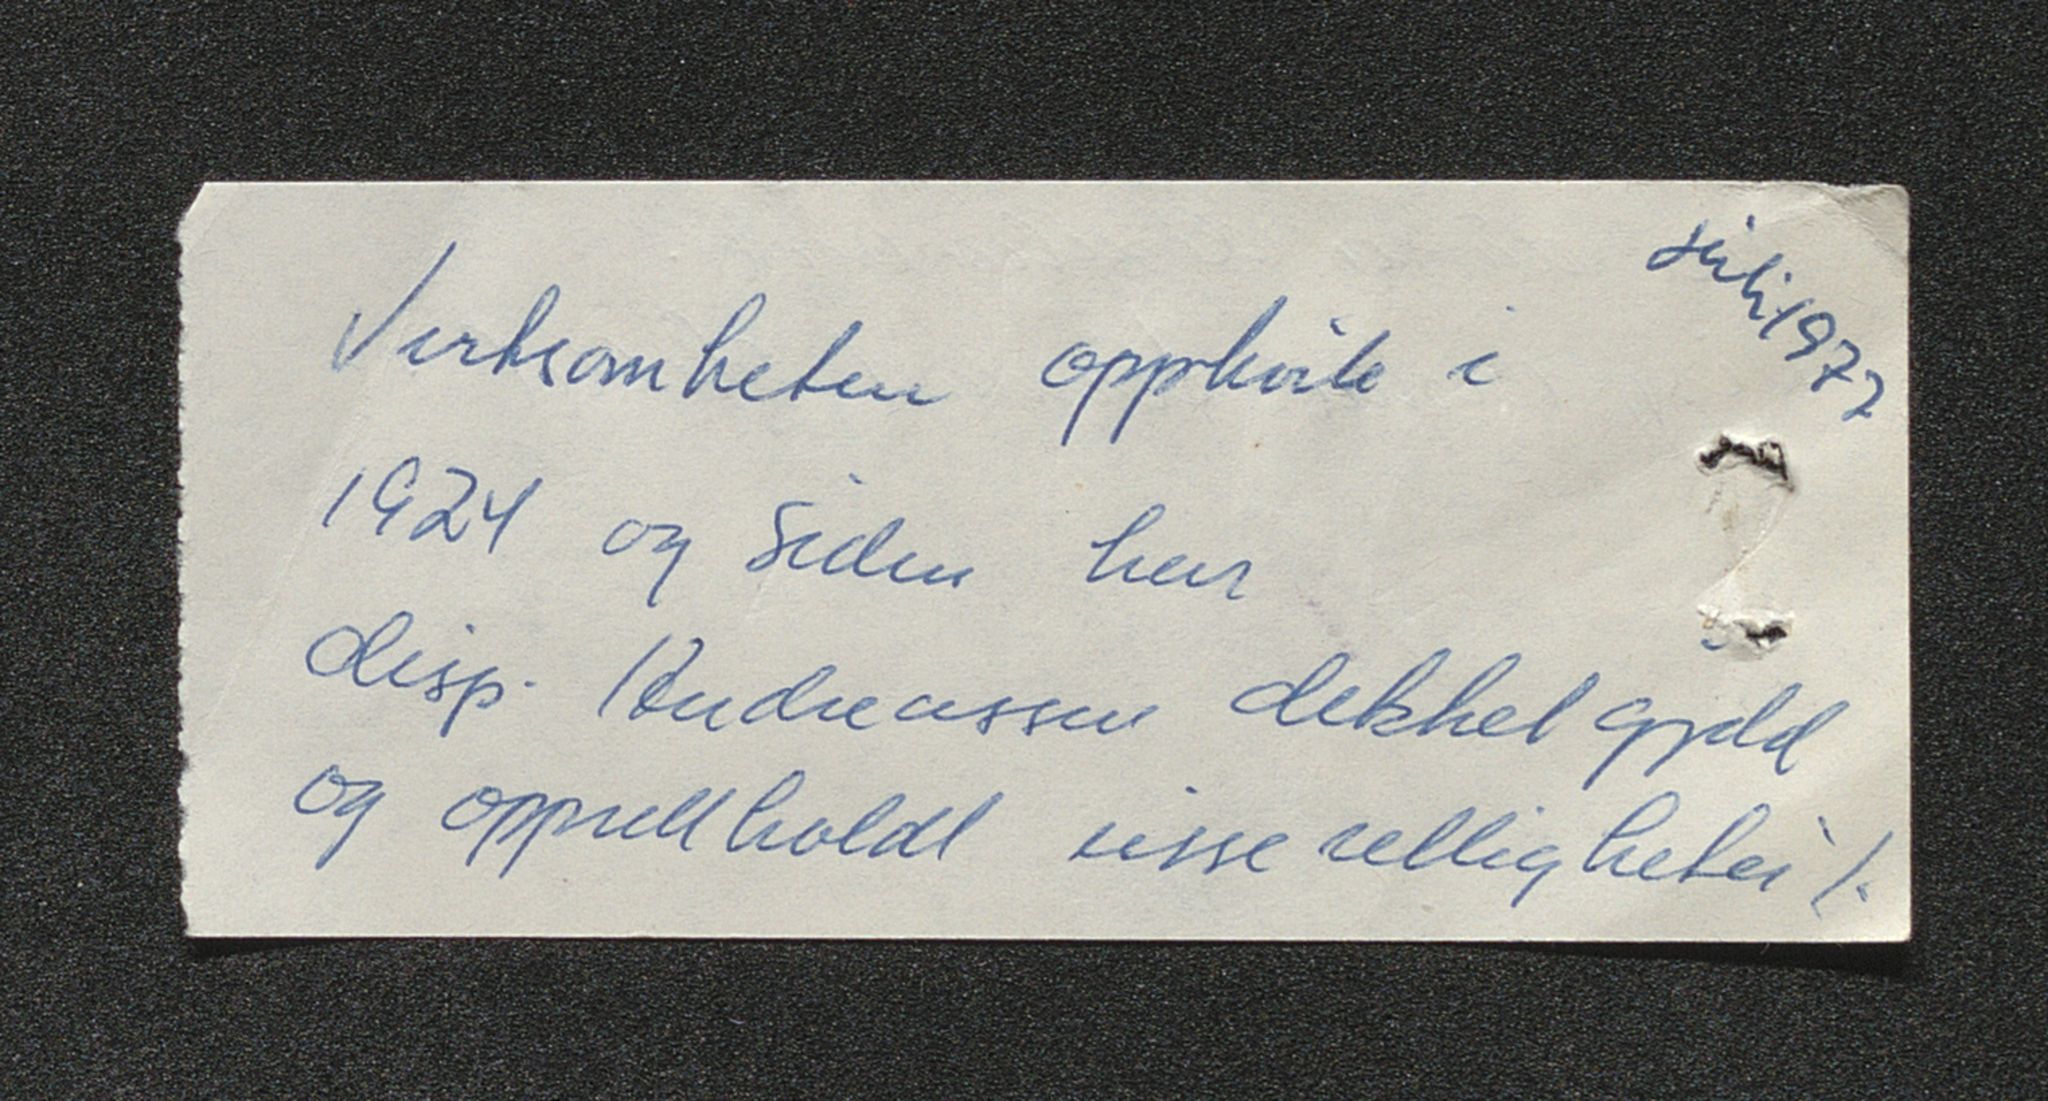 juli 1972
Virksomheten opphørte i
1924 og siden har
disp. Andreassen dekket gjeld
og opprettholdt visse rettigheter!